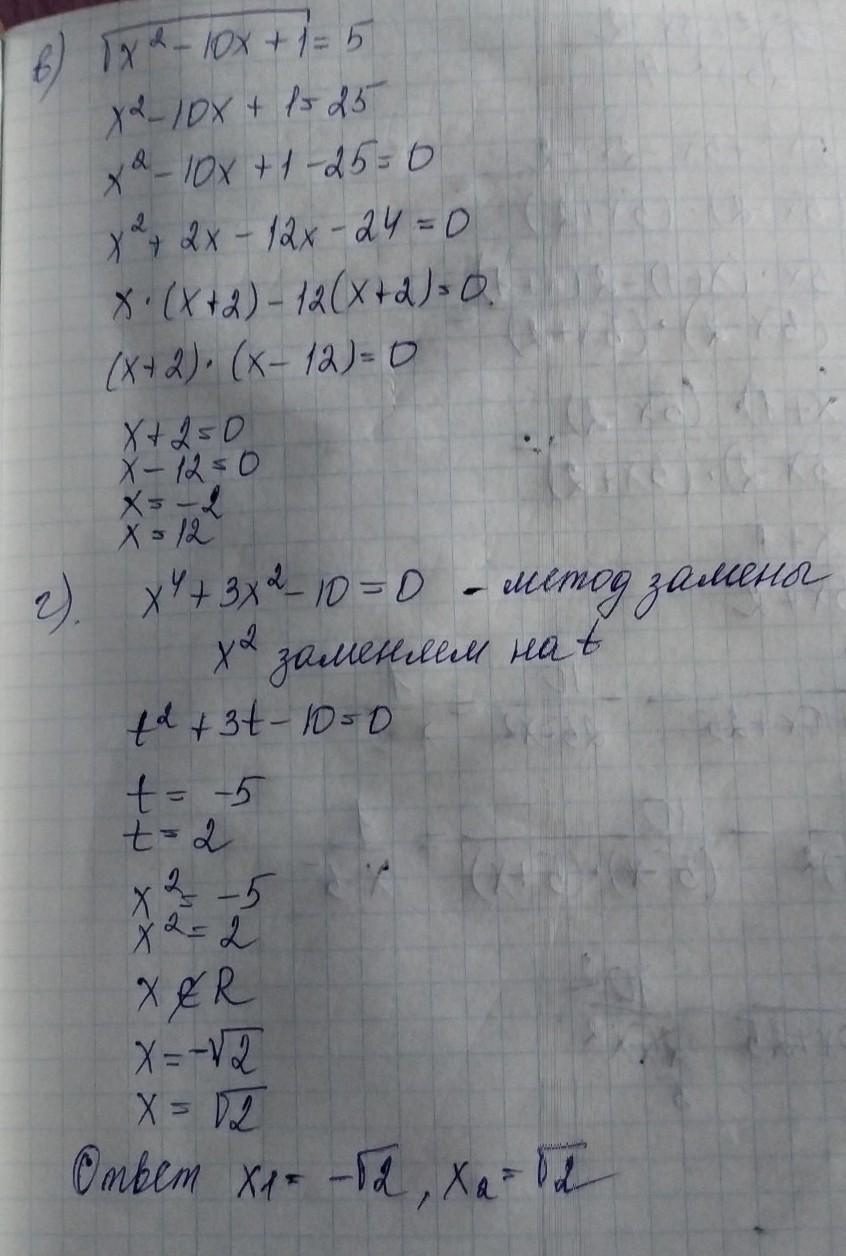 в) √x² - 10x + 1 = 5
x² - 10x + 1 = 25
x² - 10x + 1 - 25 = 0
x² + 2x - 12x - 24 = 0
x · (x + 2) - 12(x + 2) = 0.
(x + 2) · (x - 12) = 0
x + 2 = 0
x - 12 = 0
x = -2
x = 12
г). x⁴ + 3x² - 10 = 0 - метод замены
x² заменяем на t
t² + 3t - 10 = 0
t = -5
t = 2
x² = -5
x² = 2
x ∉ R
x = -√2
x = √2
Ответ x₁ = -√2, x₂ = √2